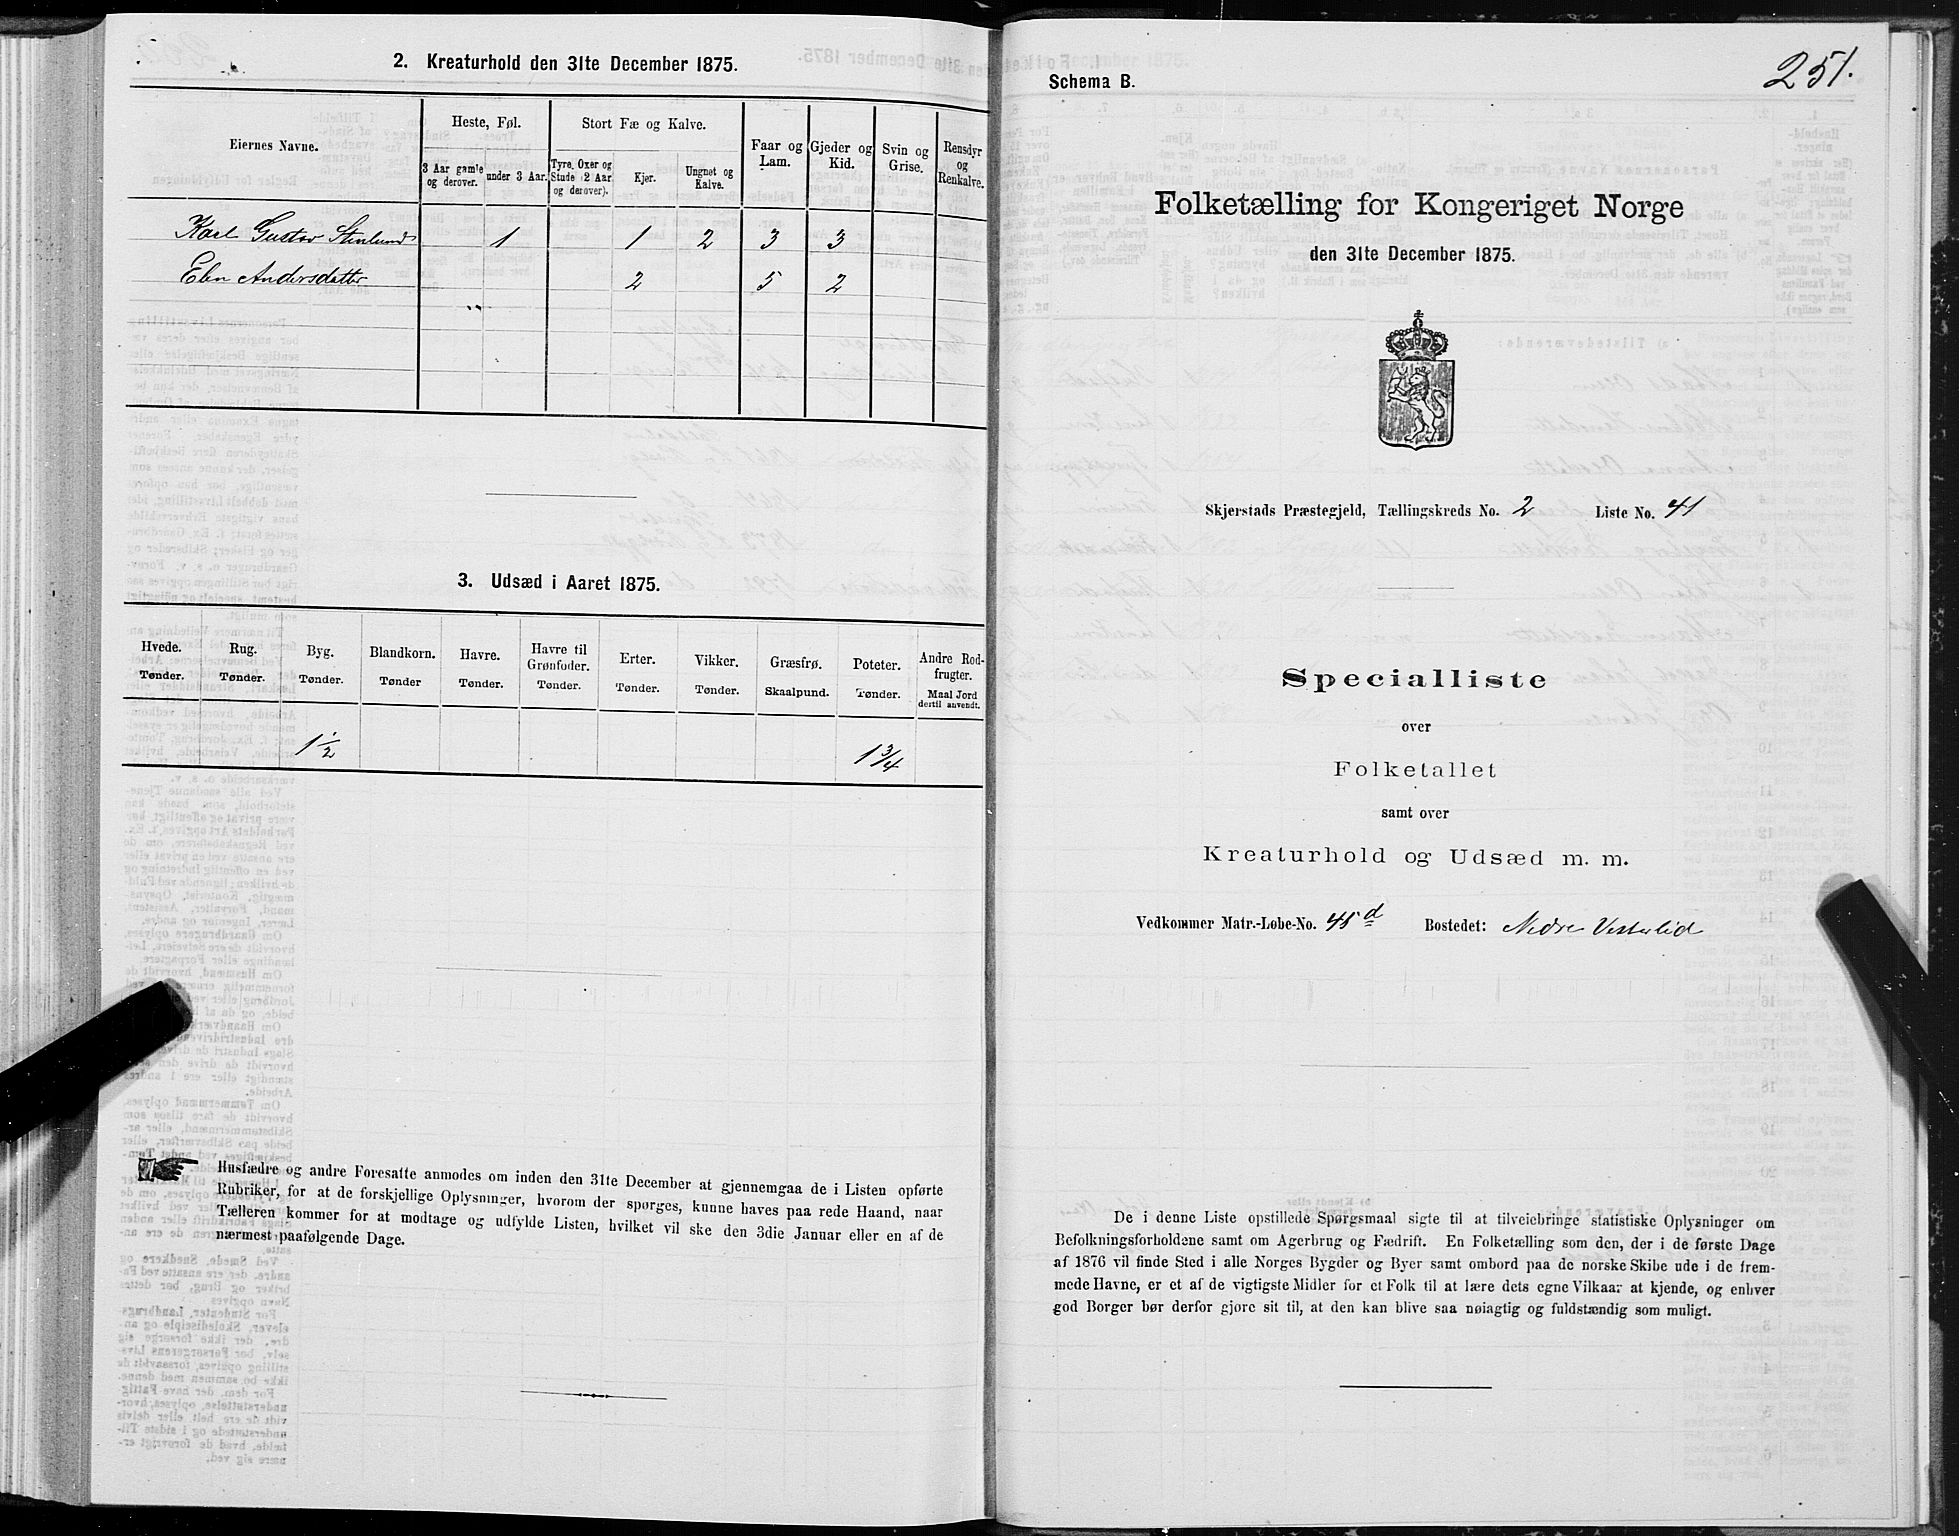 2. Kreaturhold den 31te December 1875.
Eiernes Navne.
Heste, Føl.
Stort Fæ og Kalve.
Faar og Lam.
Gjeder og Kid.
Svin og Grise.
Rensdyr og Renkalve.
3 Aar gamle og derover.
under 3 Aar.
Tyre, Oxer og Stude (2 Aar og derover).
Kjør.
Ungnet og Kalve.
Karl Gustav Stenlund 1 1 2 3 3
Elen Andersdatter 2 5 2
3. Udsæd i Aaret 1875.
Hvede. Tønder.
Rug. Tønder.
Byg. Tønder.
Blandkorn. Tønder
Havre. Tønder.
Havre til Grønfoder. Tønder.
Erter. Tønder.
Vikker. Tønder.
Græsfrø. Skaalpund.
Poteter. Tønder.
Andre Rodfrugter. Maal Jord dertil anvendt.
1 1/2 1 3/4
Husfædre og andre Foresatte anmodes om inden den 31te December at gjennemgaa de i Listen opførte
Rubriker, for at de forskjellige Oplysninger, hvorom der spørges, kunne haves paa rede Haand, naar
Tælleren kommer for at modtage og udfylde Listen, hvilket vil ske den 3die Januar eller en af de
nærmest paafølgende Dage.
251.
Schema B.
Folketælling for Kongeriget Norge
den 31te December 1875.
Skjerstads Præstegjeld, Tællingskreds No. 2 Liste No. 41
Specialliste
over
Folketallet
samt over
Kreaturhold og Udsæd m. m.
Vedkommer Matr.-Løbe-No. 45d Bostedet: Nedre Vesterlid
De i denne Liste opstillede Spørgsmaal sigte til at tilveiebringe statistiske Oplysninger om
Befolkningsforholdene samt om Agerbrug og Fædrift. En Folketælling som den, der i de første Dage
af 1876 vil finde Sted i alle Norges Bygder og Byer samt ombord paa de norske Skibe ude i de frem-
mede Havne, er et af de vigtigste Midler for et Folk til at lære dets egne Vilkaar at kjende, og enhver
god Borger bør derfor gjøre sit til, at den kan blive saa nøiagtig og fuldstændig som muligt.